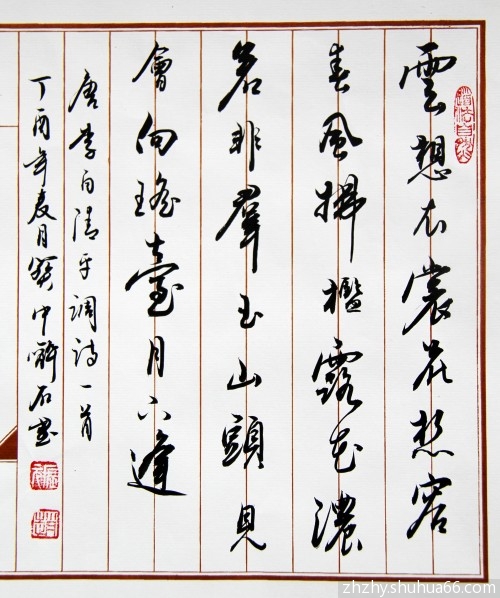 道法自然
雲想衣裳花想容
春風拂檻露華濃
若非羣玉山頭見
會向瑤臺月下逢
唐李白清平調詩一首
丁酉年夏月關中解石書
zhzhyshuhua66.com